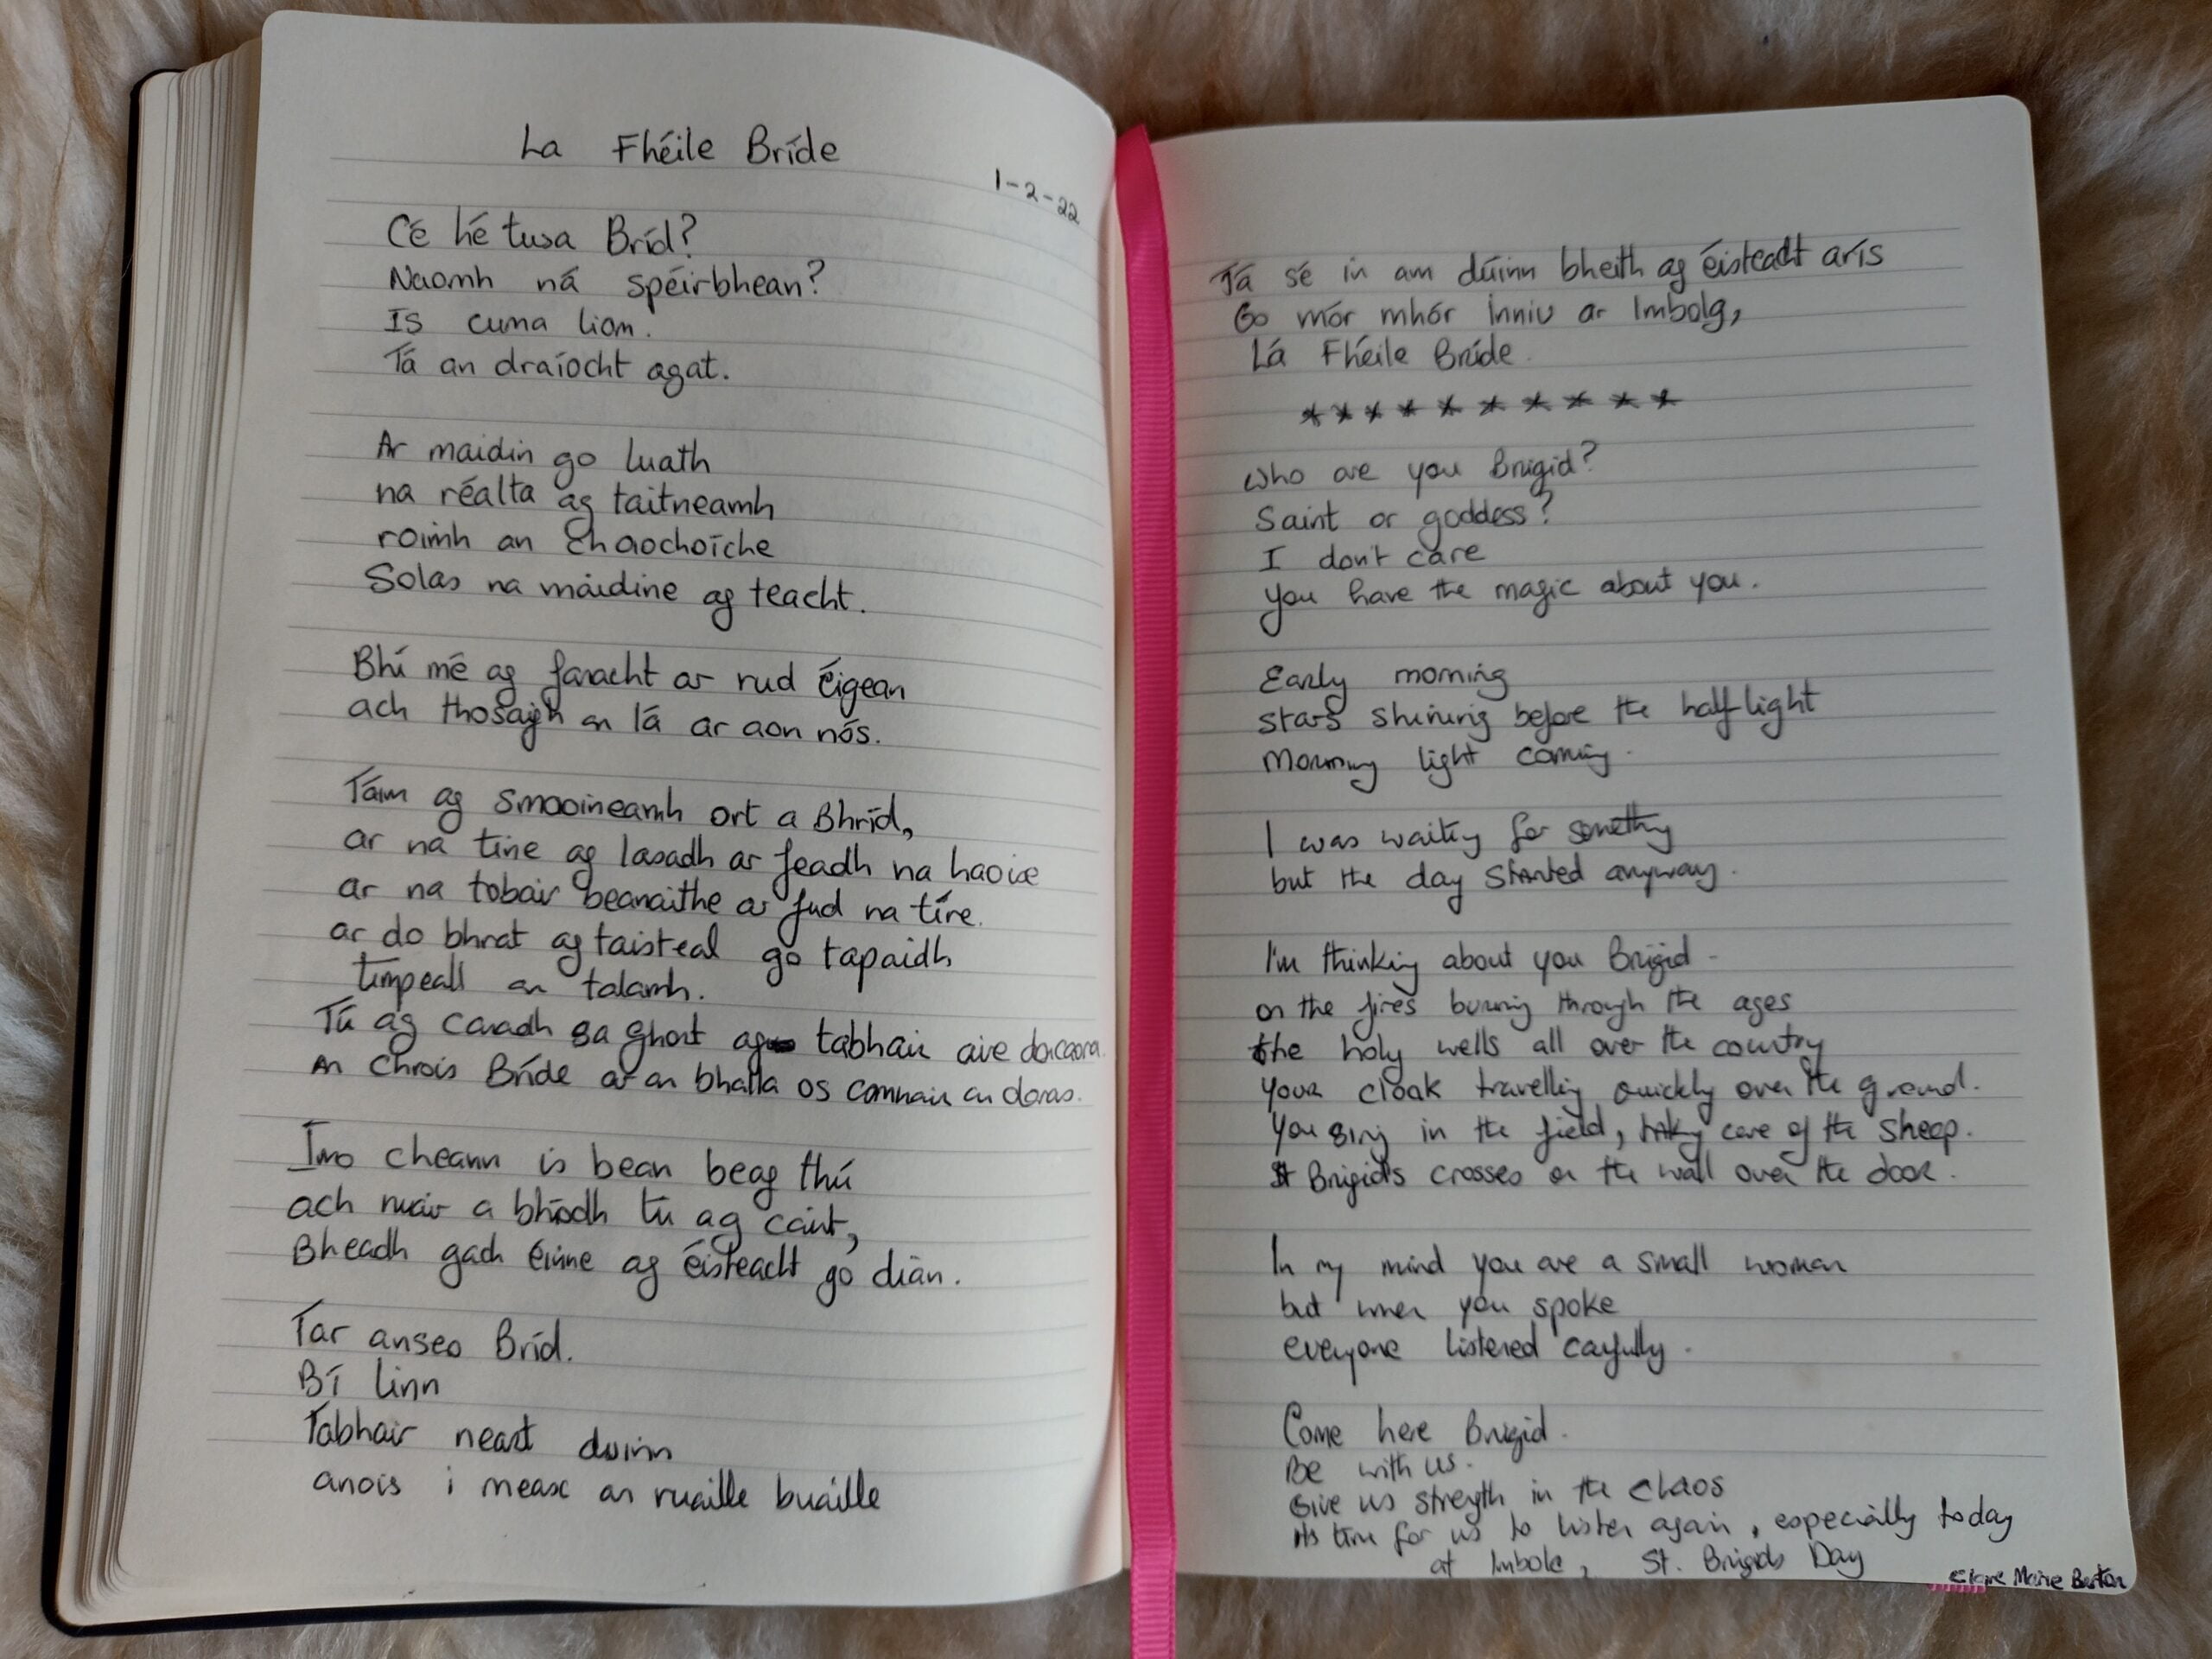 La Fhéile Bríde
1-2-22
Cé hé tusa Bríd?
Naomh ná spéirbhean?
Is cuma liom.
Tá an draíocht agat.
Ar maidin go luath
na réalta ag taitneamh
roimh an
Solas na maidine ag teacht.
Bhí mé ag fanacht ar rud éigean
ach thosaigh an lá ar aon nós.
Táim ag smaoineamh ort a Bhríd,
ar na tine ag lasadh ar feadh na haoise
ar na tobair beanaithe ar fud na tíre.
ar do bhrat ag taisteal go tapaidh
timpeall an talamh.
Tú ag canadh sa ghort ag tabhair aire
An Chrois Bríde ar an bhalla os comhair an doras.
I mo cheann is bean beag thú
ach nuair a bhíodh tú ag caint,
Bheadh gach éinne ag éisteacht go dian.
Tar anseo Bríd.
Bí linn
Tabhair neart duinn
anois i measc an ruaille buaille
Tá sé in am dúinn bheith ag éisteacht arís
Go mór mhór inniu ar Imbolg,
Lá Fhéile Bríde.
**********
Who are you Brigid?
Saint or goddess?
I don't care
You have the magic about you.
Early morning
stars shining before the half-light
Morning light coming.
I was waiting for something
but the day started anyway.
I'm thinking about you Brigid -
on the fires burning through the ages
the holy wells all over the country
your cloak travelling quickly over the ground.
You sing in the field, taking care of the sheep.
St Brigid's crosses on the wall over the door.
In my mind you are a small woman
but when you spoke
everyone listened carfully.
Come here Brigid.
Be with us.
Give us strength in the chaos
its time for us to listen again, especially today
at Imbolc, St. Brigids Day
Claire Marie Burton